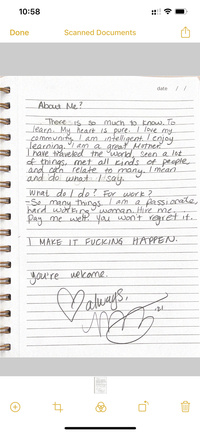 10:58
Done
Scanned Documents
date / /
About Me?
There is so much to know. To
learn. My heart is pure. I love my
community. I am intelligent. I enjoy
learning. I am a great Mother.
I have traveled the world, seen a lot
of things, met all kinds of people
and can relate to many. I mean
and do what I say.
What do I do? For work?
-So many things. I am a passionate,
hard working woman. Hire me.
Pay me well. You won't regret it.
I MAKE IT FUCKING HAPPEN.
you're welcome.
always,
'21